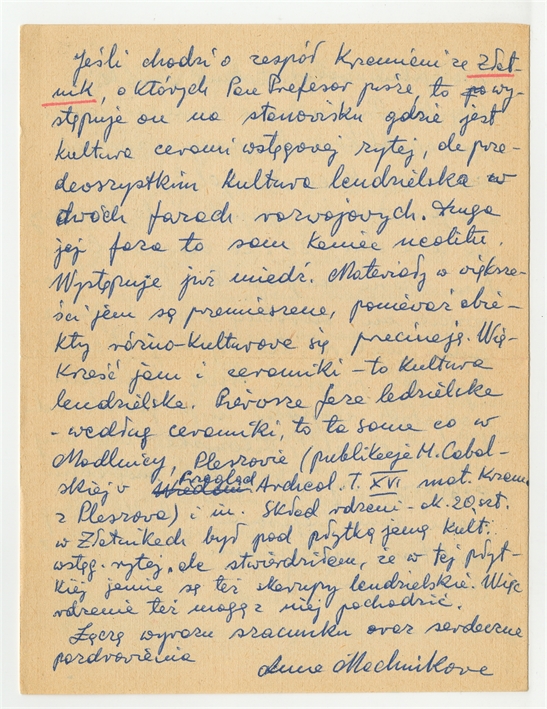 Jeśli chodzi o zespół Krzemieni ze Złot-
nik, o których Pan Profesor pisze, to wy-
stępuje on na stanowisku gdzie jest
kultura cerami wstęgowej rytej, ale prze-
dewszystkim kultura lendzielska w
dwóch fazach rozwojowych. Druga
jej faza to sam koniec neolitu.
Występuje już miedź. Materiały w większo-
ści jam są przemieszane, ponieważ obie-
kty różno-kulturowe się przecinają. Wię-
kszość jam i ceramiki - to kultura
lendzielska. Pierwsza faza ledzielska
- według ceramiki, to ta sama co w
Modlnicy, Pleszowie (publikacje M. Cabal-
skiej w Przegląd Archeol. T. XVI mat. Krzem.
z Pleszowa) i in. Skład rdzeni - ok. 20 szt.
w Złotnikach był pod płytką jamą kult.
wstęg. rytej, ale stwierdziłam, że w tej płyt-
kiej jamie są też skorupy lendzielskie. Więc
rdzenie też mogą z niej pochodzić.
Łączę wyrazy szacunku oraz serdeczne
pozdrowienia
Anna Machnikowa